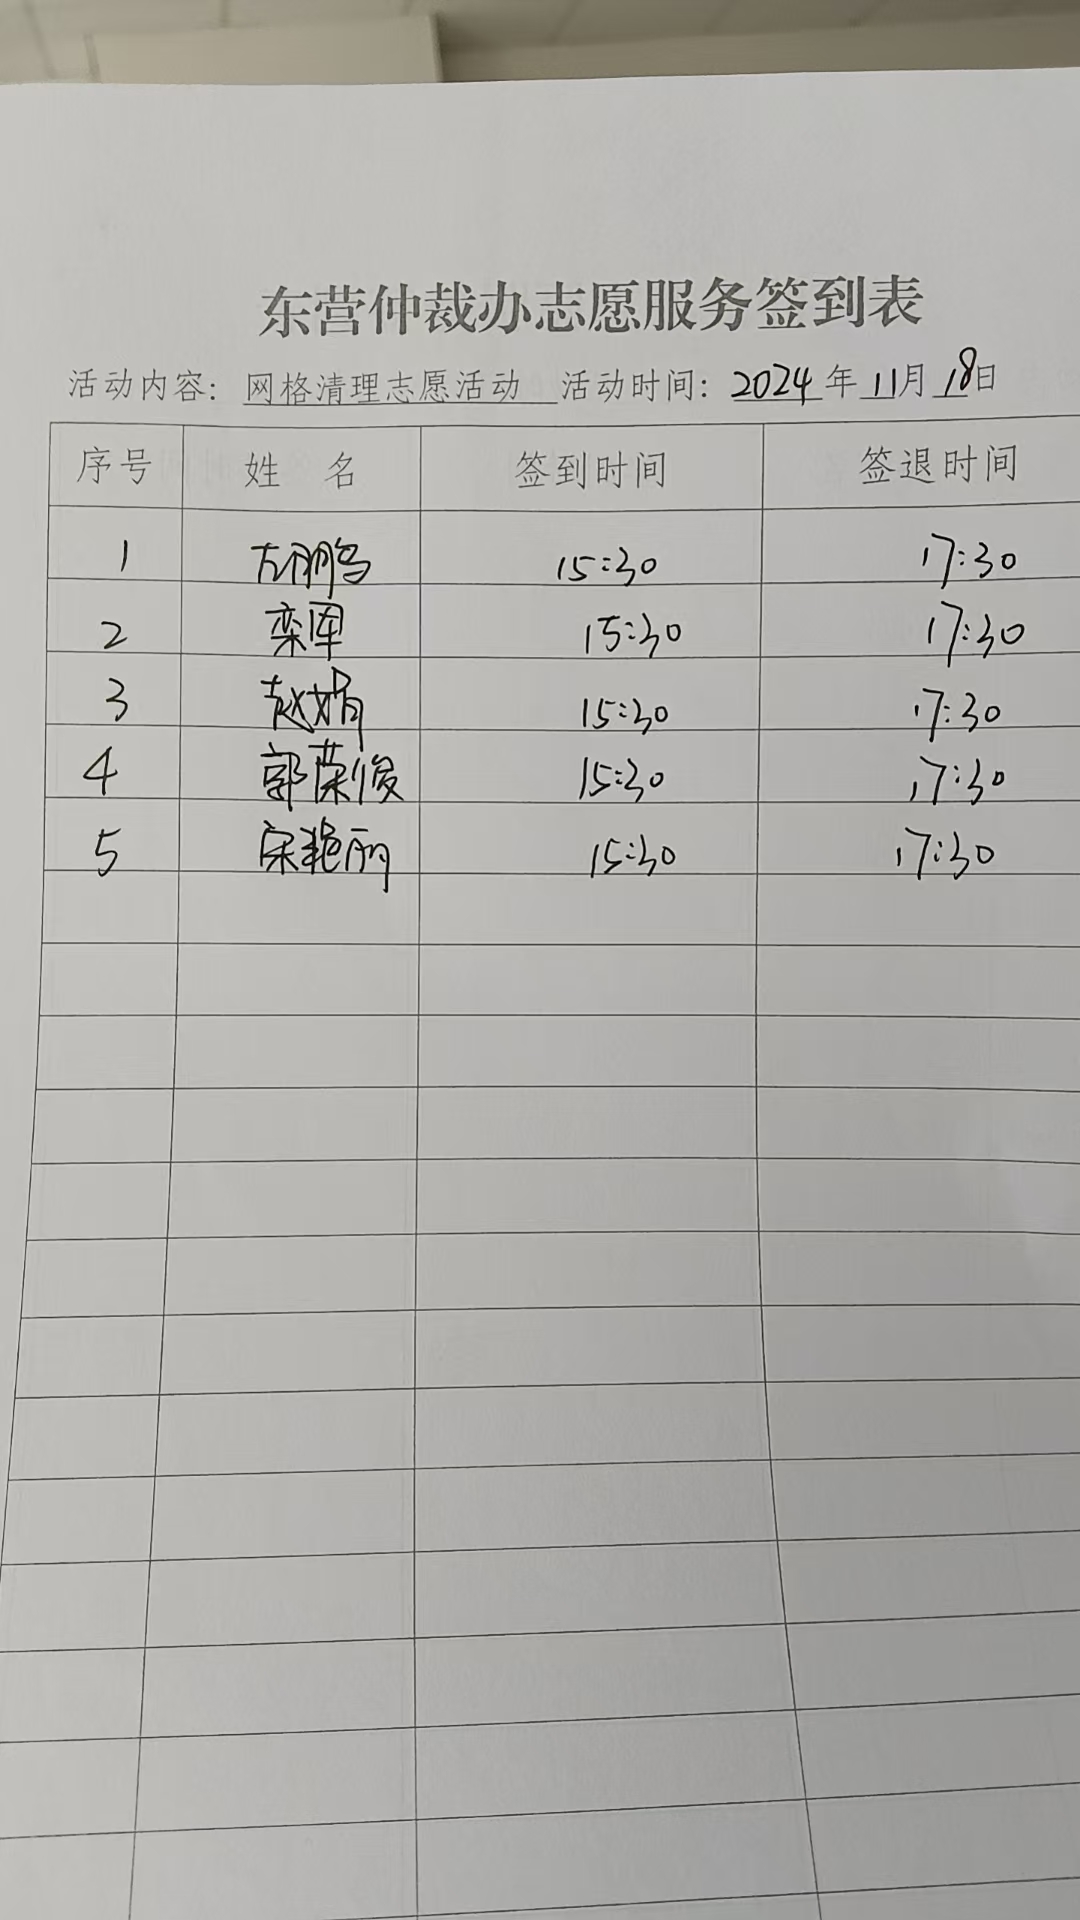 东营仲裁办志愿服务签到表
活动内容：网格清理志愿活动 活动时间：2024年11月18日
序号 姓 名 签到时间 签退时间
1 左鹏 15:30 17:30
2 栾军 15:30 17:30
3 赵娟 15:30 17:30
4 郭荣俊 15:30 17:30
5 宋艳丽 15:30 17:30